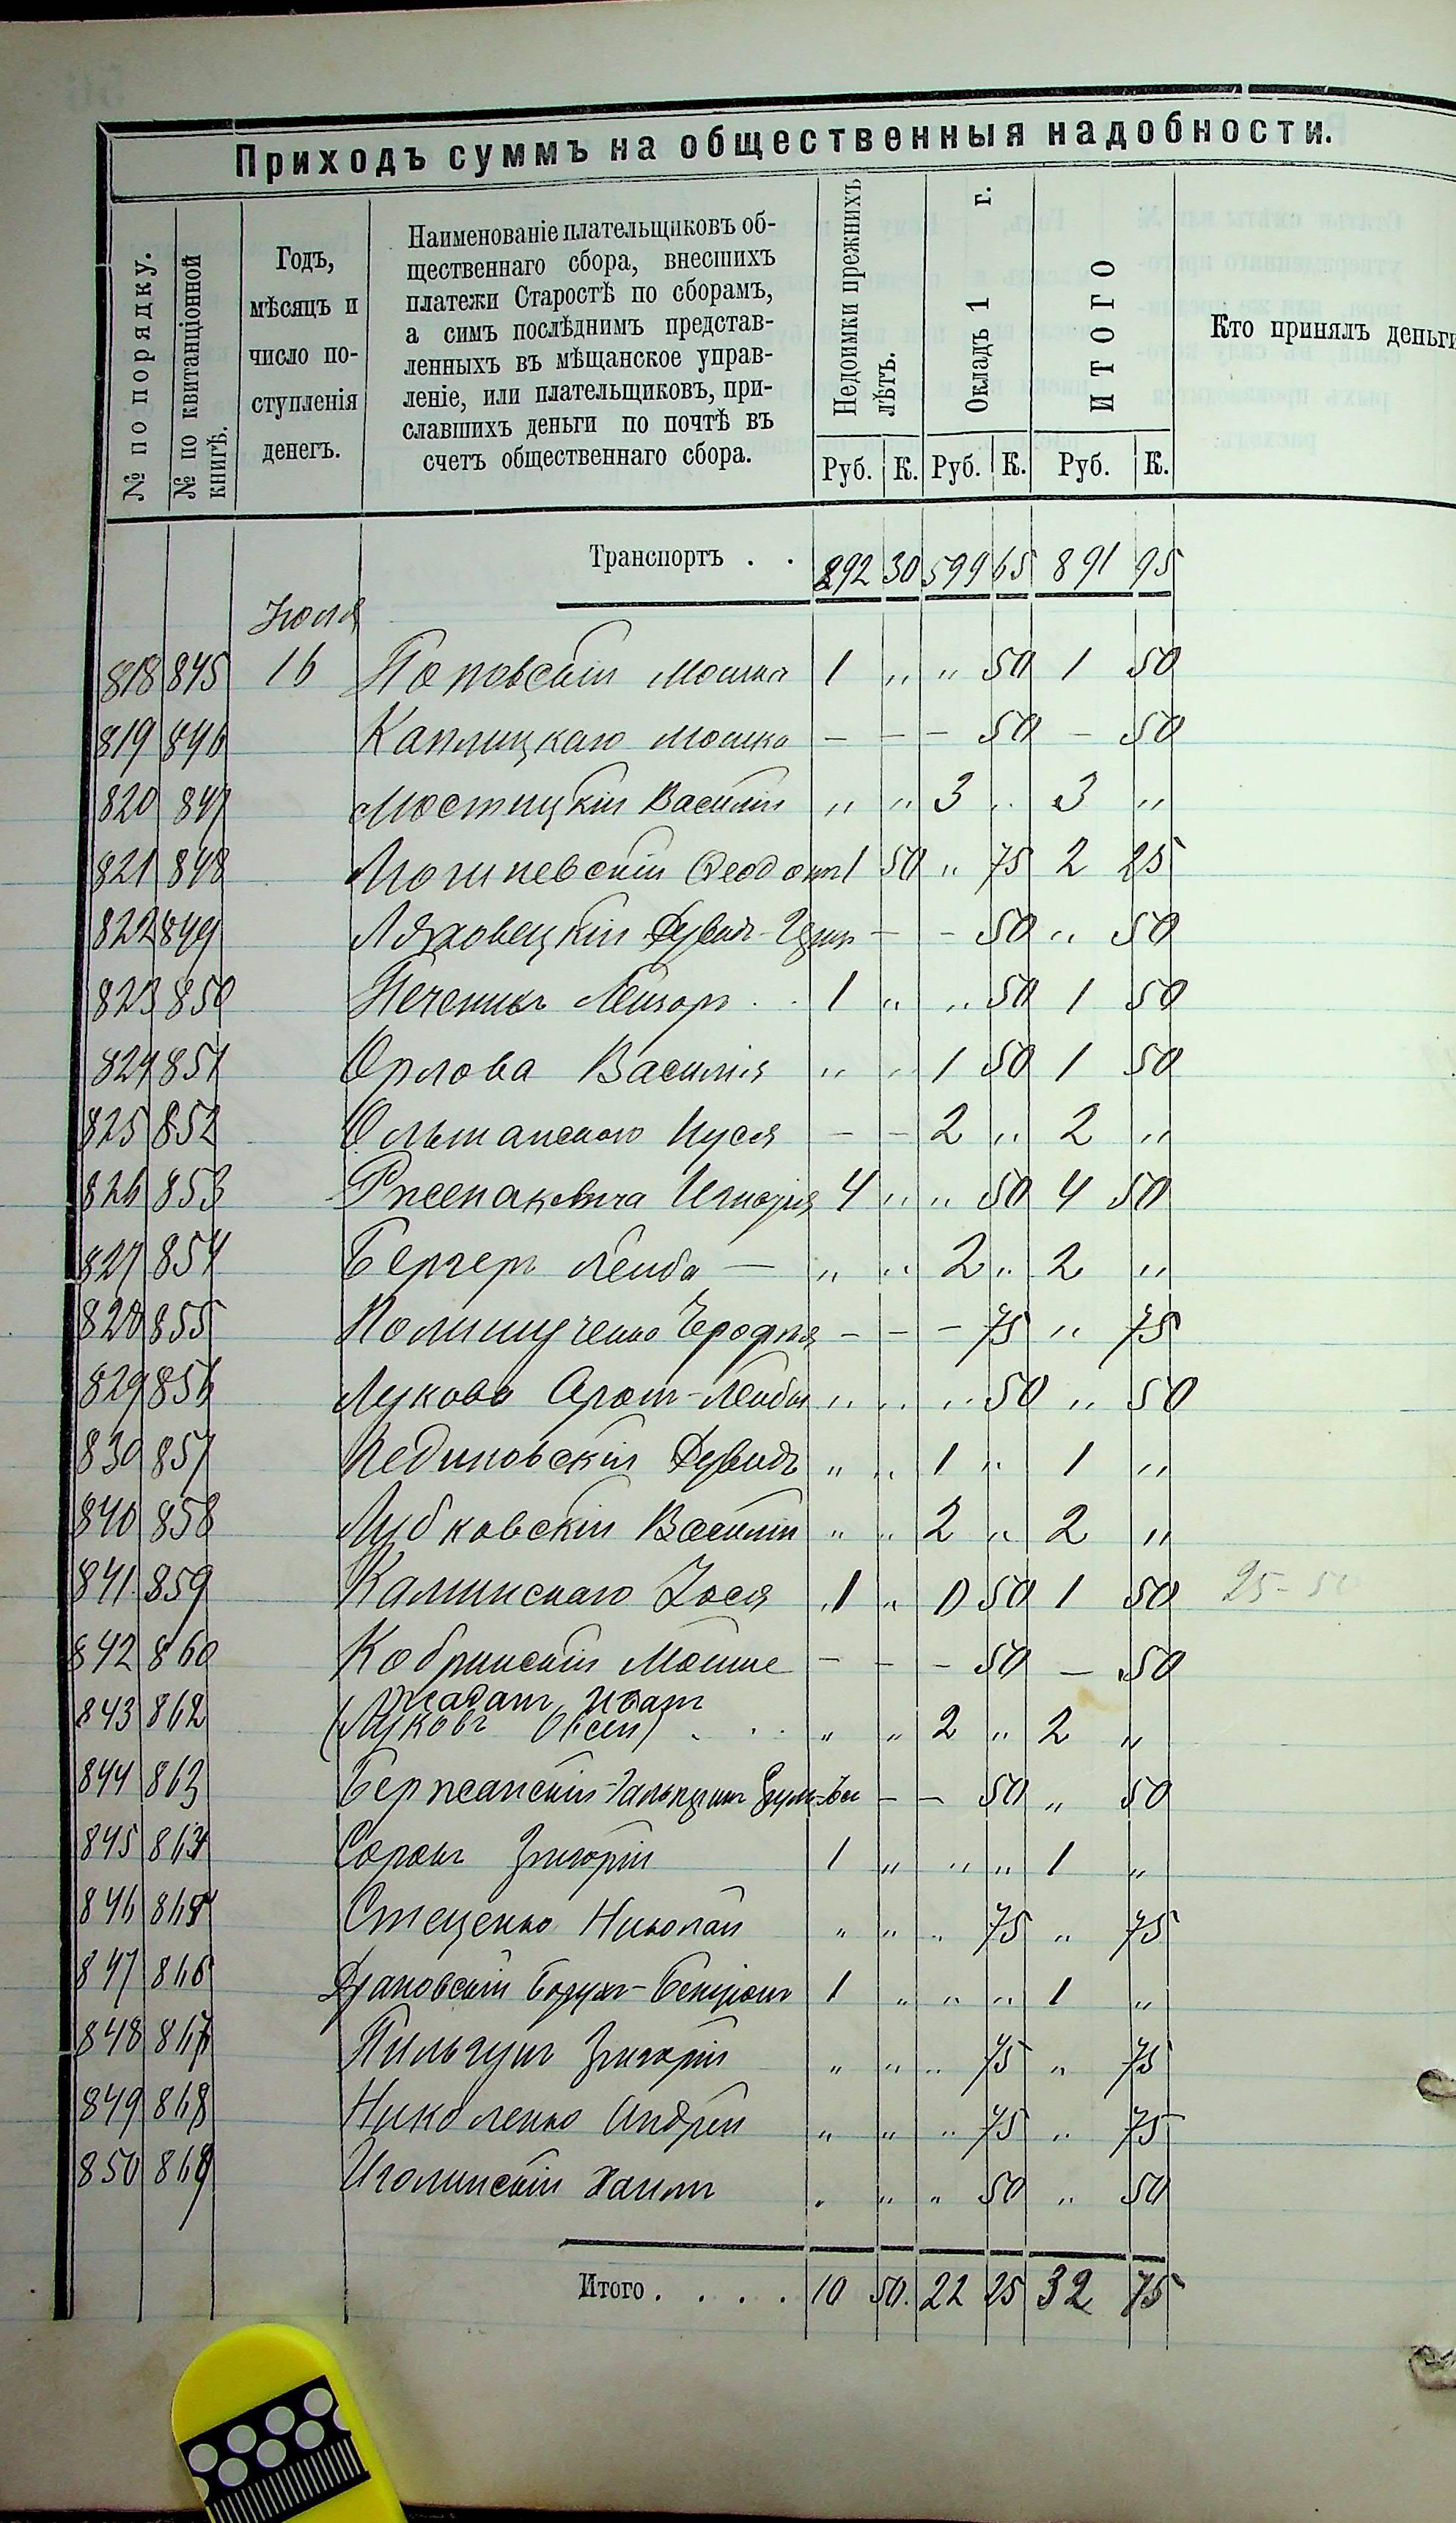 Приходъ суммъ на общественныя надобности.
№ по порядку.
№ по квитанціонной книгѣ.
Годъ, мѣсяцъ и число поступленія денегъ.
Наименованіе плательщиковъ об-
щественнаго сбора, внесшихъ
платежи Старостѣ по сборамъ,
а симъ послѣднимъ представ-
ленныхъ въ мѣщанское управ-
леніе, или плательщиковъ, при-
славшихъ деньги по почтѣ въ
счетъ общественнаго сбора.
Недоимки прежнихъ лѣтъ.
Окладъ 1 г.
ИТОГО
Кто принялъ деньги
Руб. К. Руб. К. Руб. К.
Транспортъ . . 292 30 599 65 891 95
Іюля
818 845 16 Поповскій Мошка 1 „ „ 50 1 50
819 846 Каплицкаго Мошко – – – 50 – 50
820 847 Мостицкій Василій „ „ 3 „ 3 „
821 848 Могилевскій 1 50 „ 75 2 25
822 849 Ляховецкій Дувидъ – – 50 „ 50
823 850 Печеникъ Лейзоръ . . 1 „ „ 50 1 50
824 851 Орлова Василія „ „ 1 50 1 50
825 852 Ольшанскаго Нуся – – 2 „ 2 „
826 853 4 „ „ 50 4 50
827 854 Бергеръ Лейба — „ „ 2 „ 2 „
828 855 – – – 75 „ 75
829 856 Лукова Арон-Лейбы „ „ „ 50 „ 50
830 857 Дувидъ „ „ 1 „ 1 „
840 858 Лубковскій Василій „ „ 2 „ 2 „
841 859 Калинскаго Зося 1 „ 0 50 1 50
842 860 Кобринскій Мойше – – – 50 – 50
843 862 Иванъ
(Луковъ . . . „ „ 2 „ 2 „
844 863 – – 50 „ 50
845 864 Григорій 1 „ „ „ 1 „
846 Стеценко Николай „ „ „ 75 „ 75
847 866 Борухъ-Бенціонъ 1 „ „ „ 1 „
848 867 Пильгунъ Григорій „ „ „ 75 „ 75
849 868 Николенко Андрей „ „ „ 75 „ 75
850 869 Иголинскій Хаимъ „ „ „ 50 „ 50
Итого . . . . 10 50 22 25 32 75